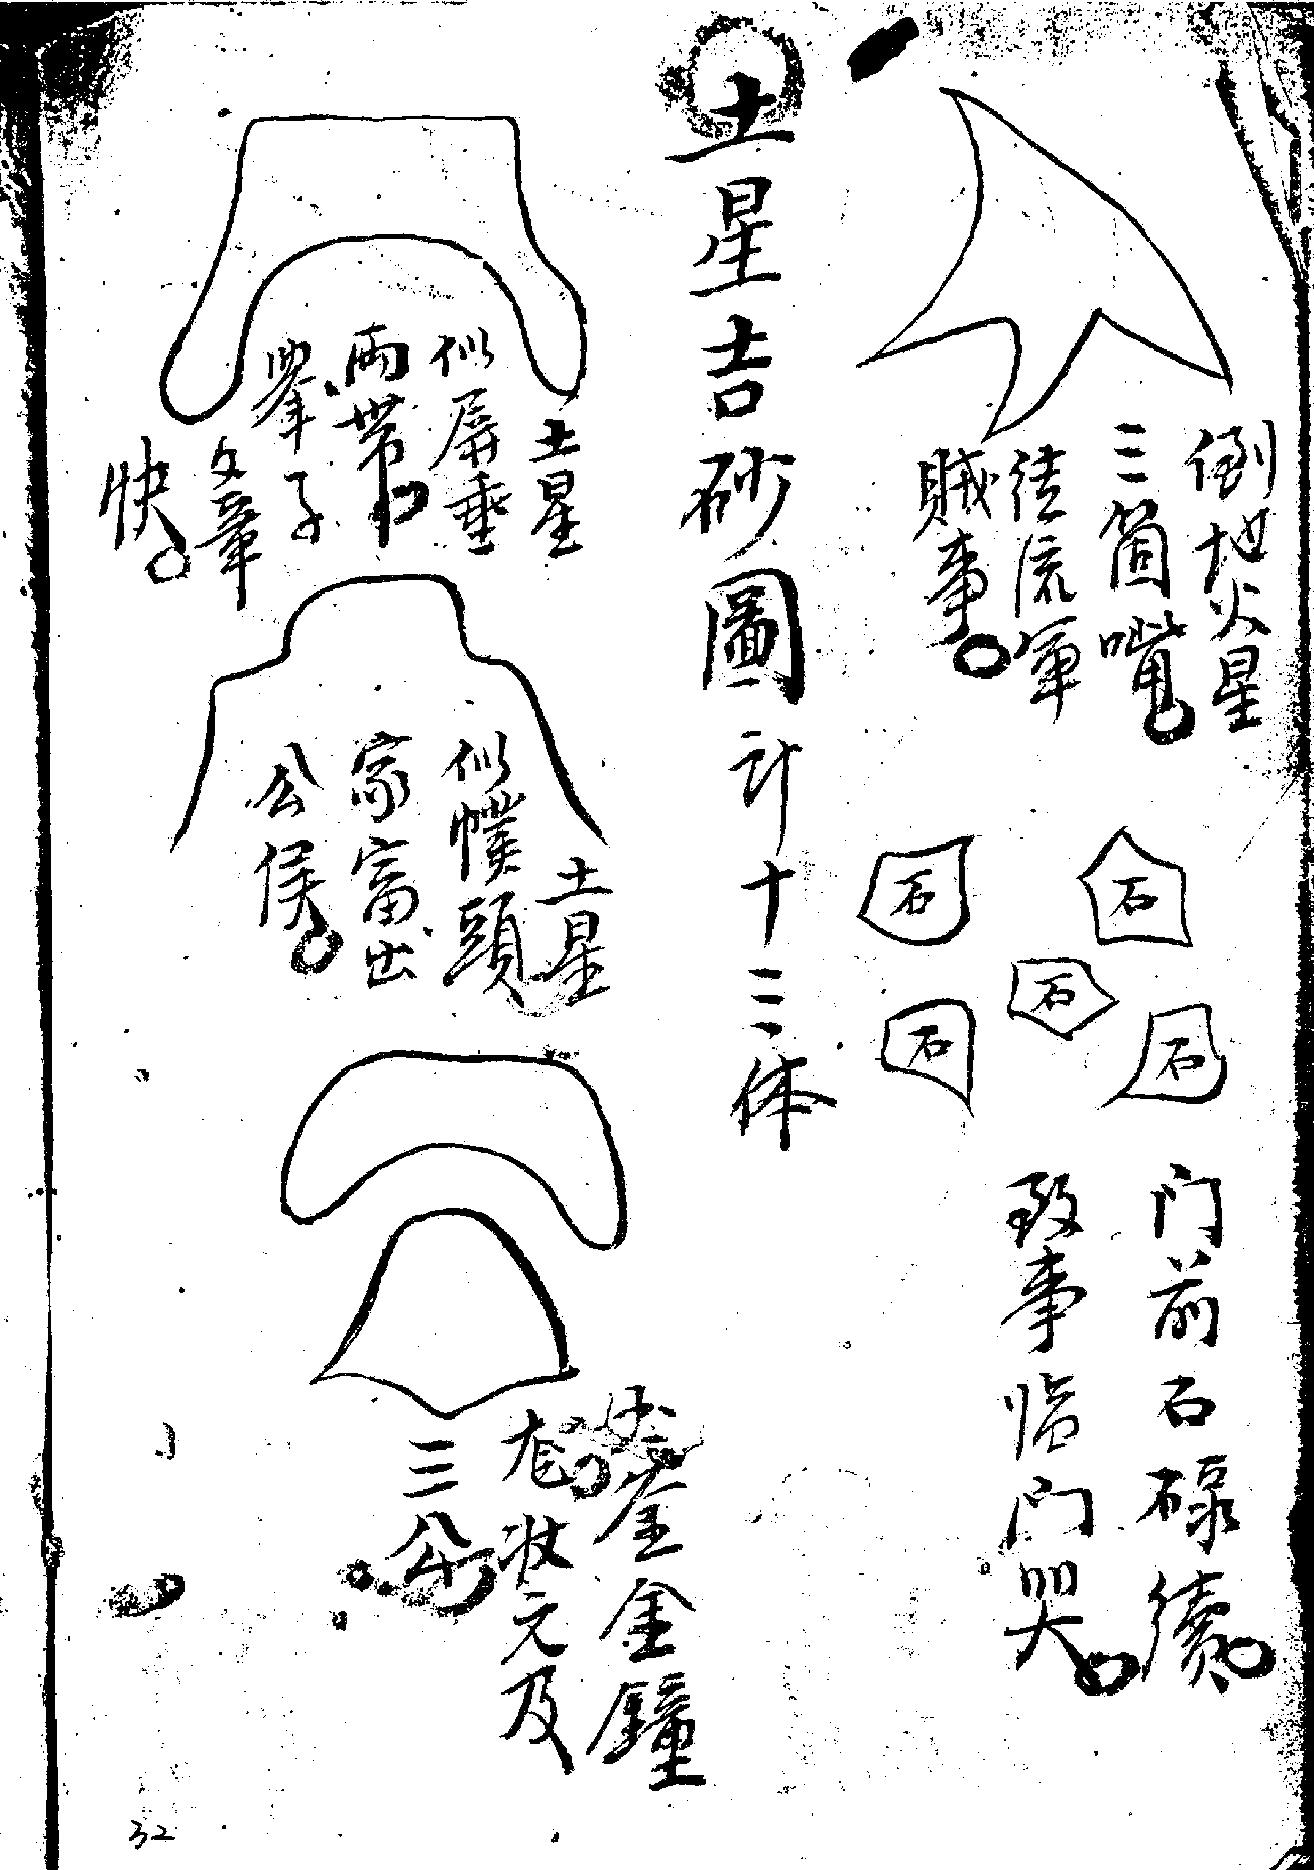 倒地火星
三箇嘴
徒流軍
賊事
石
石
石
石
石
门前石磙續
致事临门哭
土星吉砂圖計十三体
土星
似屏垂
兩帶
舉子
文章
快
土星
似幞頭
家富出
公侯
金鐘
状元及
三公
32